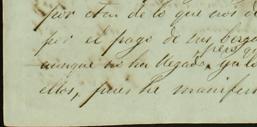 por otra de lo que nos d
por el pago de sus
pero q
aunque no han llegado, ya lo
ellos, pues he manifes